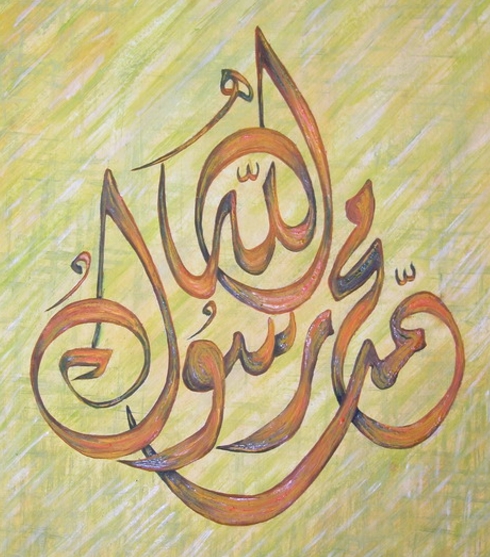 محمّد رسُولُ اللّه